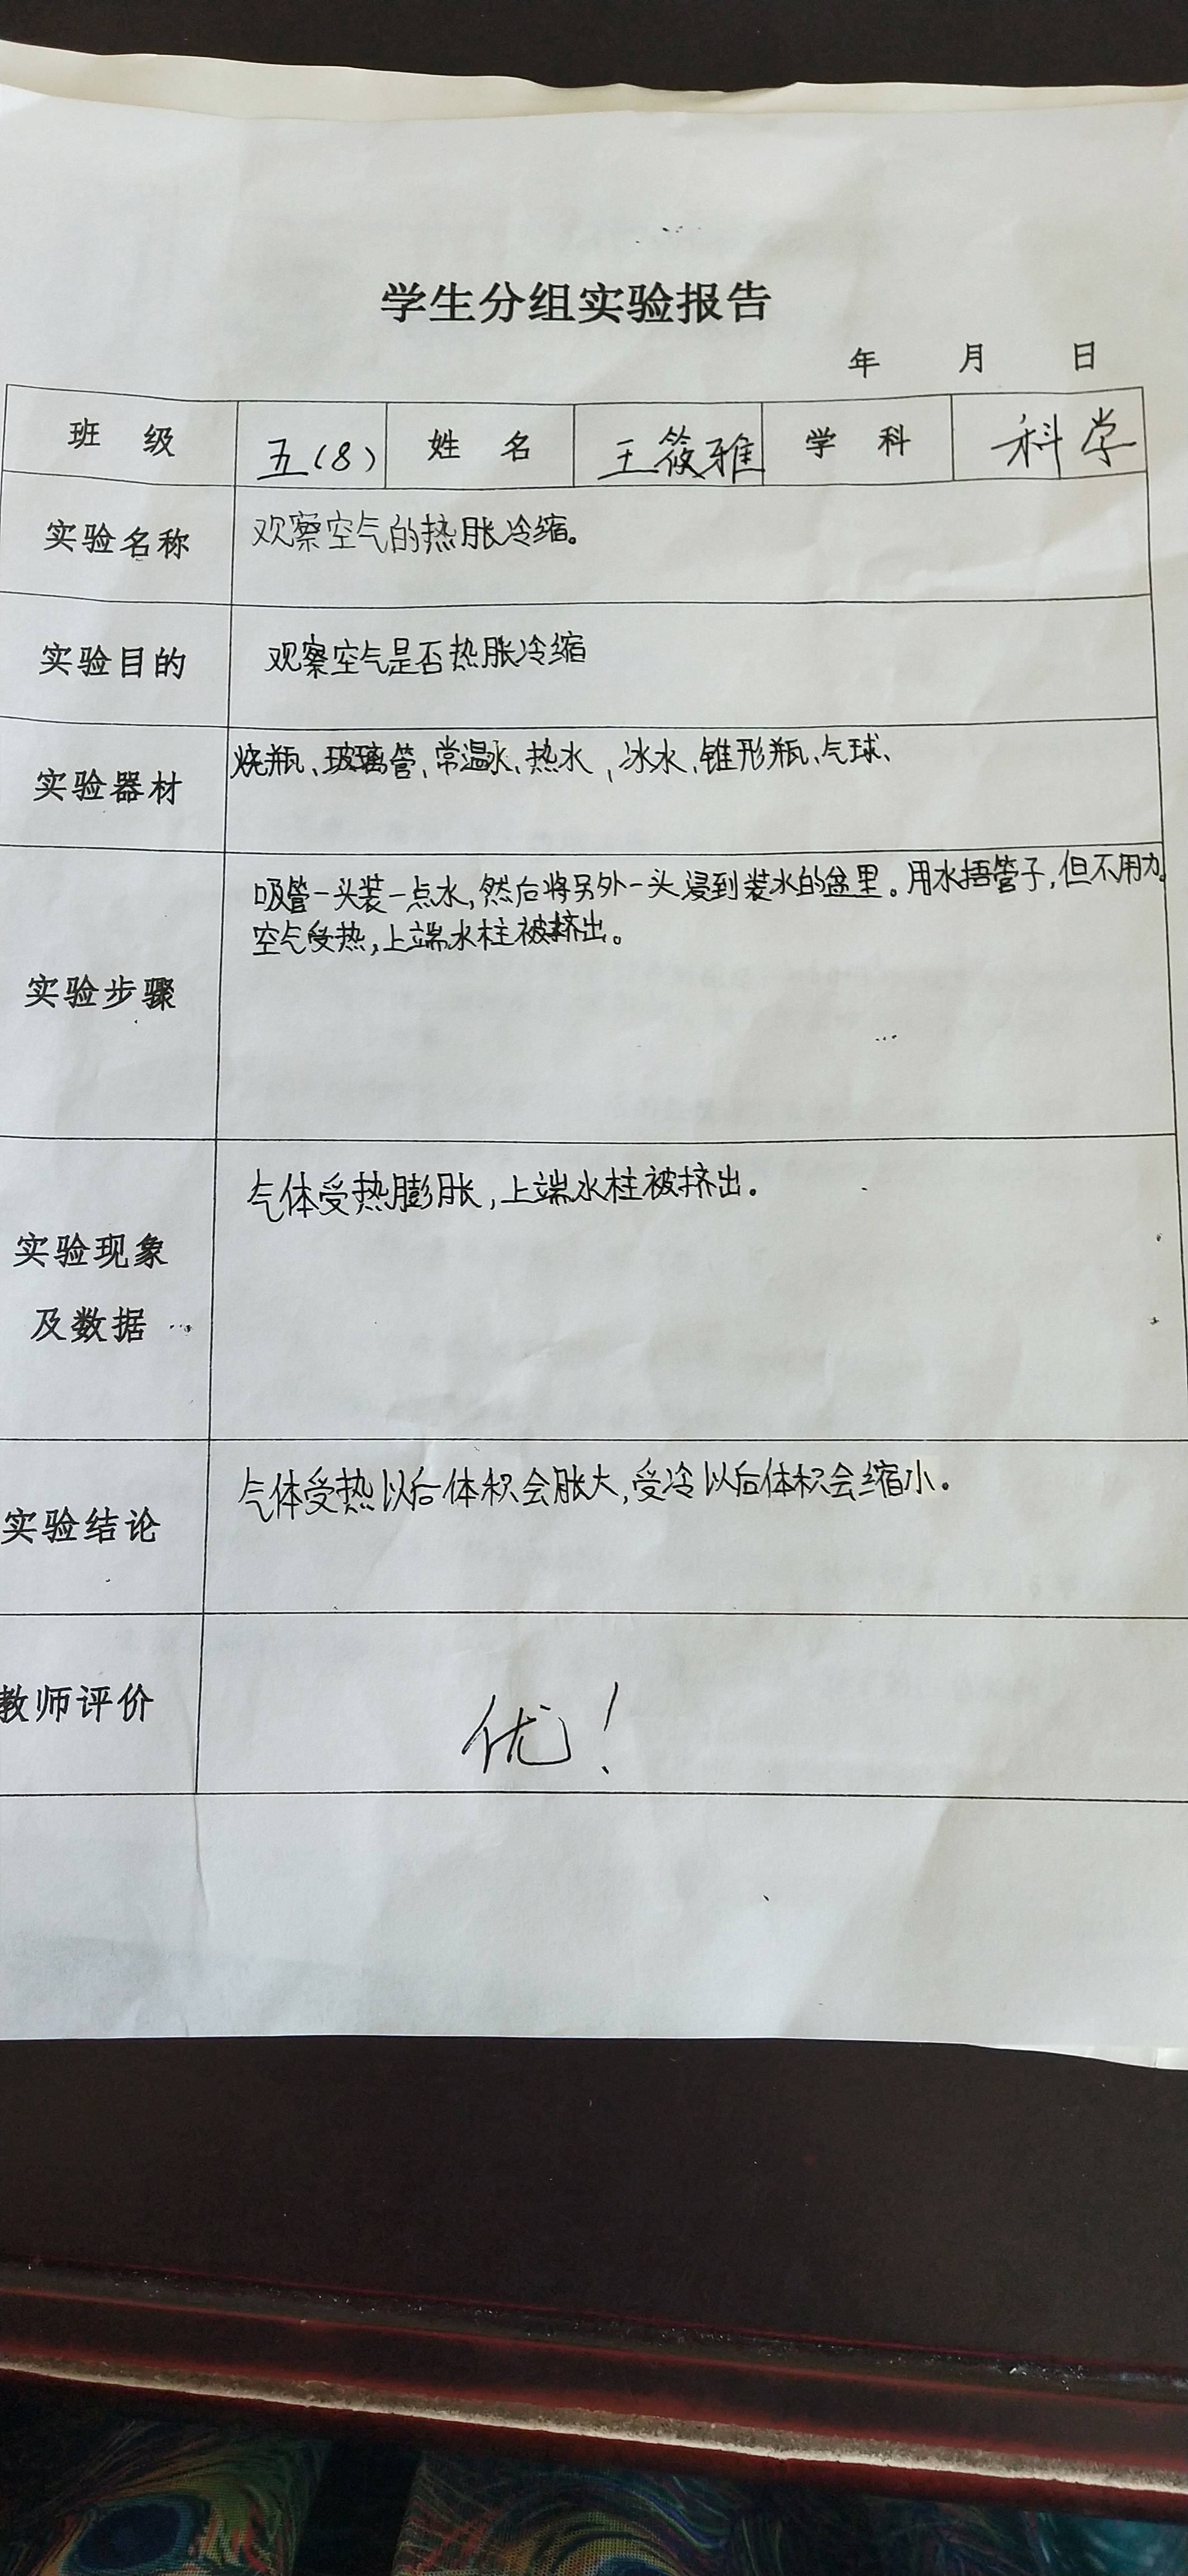 学生分组实验报告
年 月 日
班 级 五(8) 姓 名 王筱雅 学 科 科学
实验名称 观察空气的热胀冷缩。
实验目的 观察空气是否热胀冷缩
实验器材 烧瓶、玻璃管、常温水、热水，冰水、锥形瓶、气球、
实验步骤 吸管一头装一点水,然后将另外一头浸到装水的盆里。用水捂管子,但不用力。
空气受热,上端水柱被挤出。
实验现象 气体受热膨胀,上端水柱被挤出。
及数据
实验结论 气体受热以后体积会胀大,受冷以后体积会缩小。
教师评价 优!